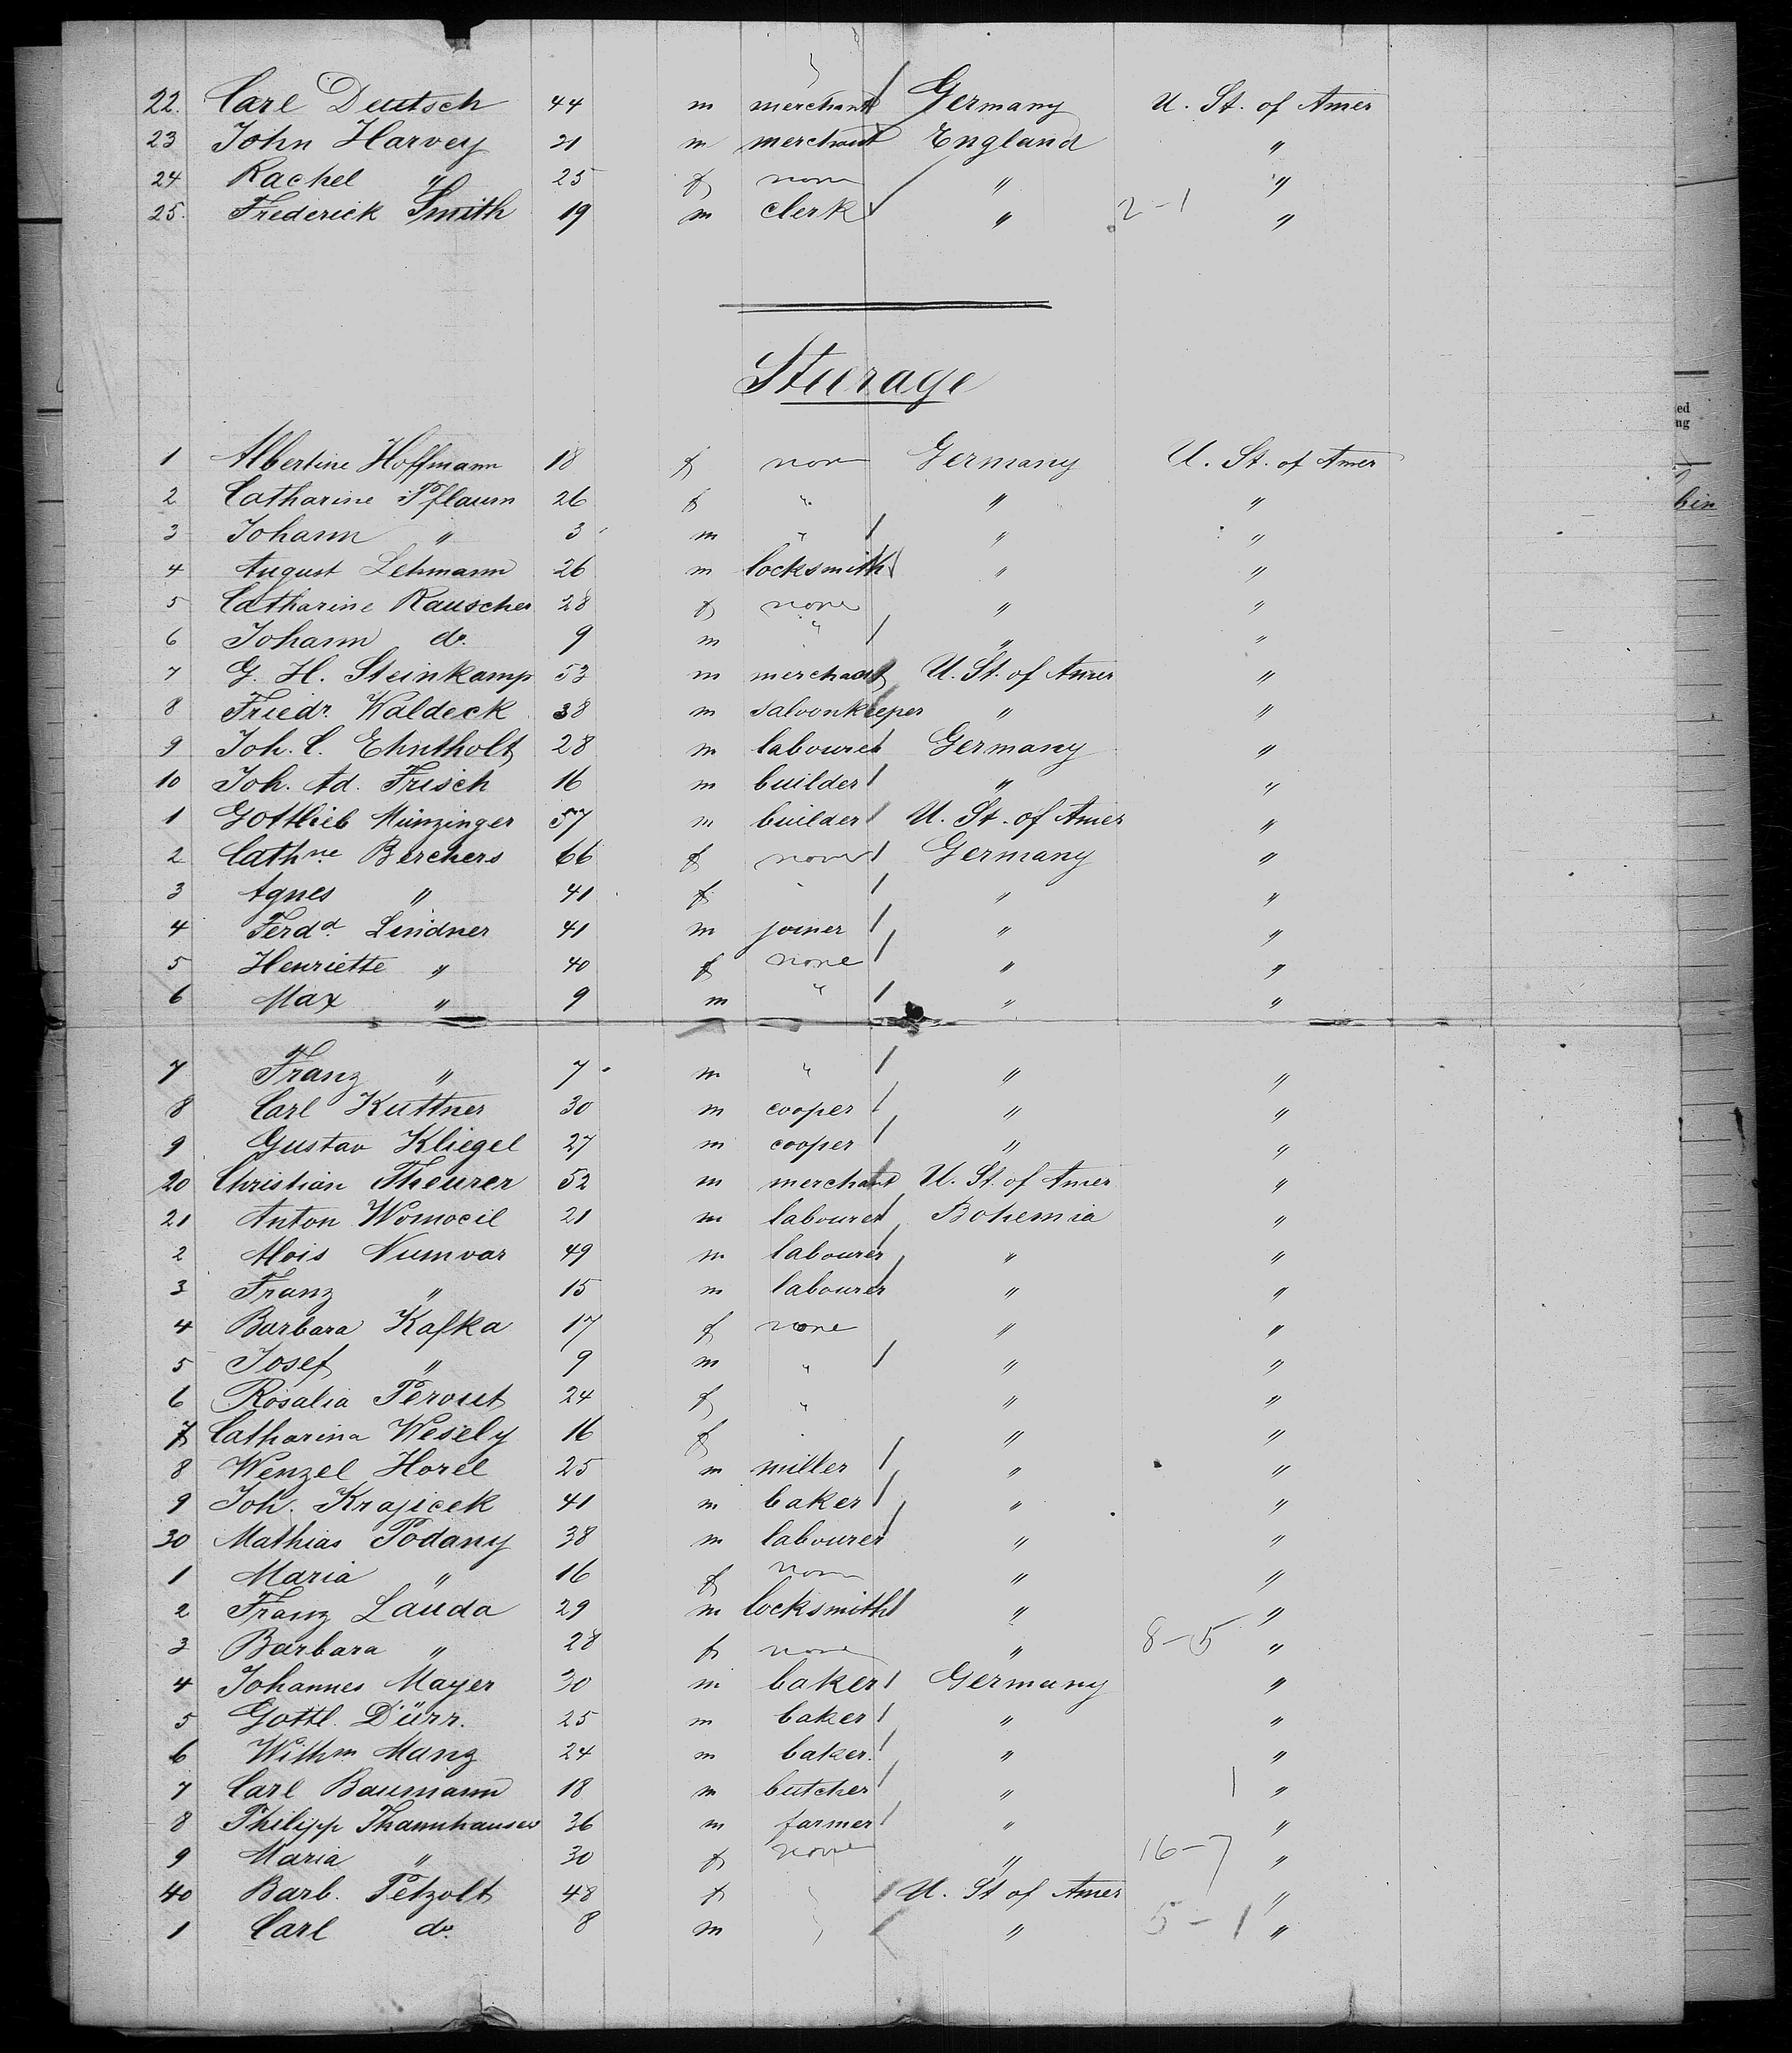 22. Carl Deutsch 44 m merchant Germany U. St. of Amer
23 John Harvey 21 m merchant England "
24 Rachel " 25 f none " "
25. Frederick Smith 19 m clerk " 2-1 "
Steerage
1 Albertine Hoffmann 18 f none Germany U. St. of Amer
2 Catharine Pflaum 26 f " " "
3 Johann " 3 m " " "
4 August Lehmann 26 m locksmith " "
5 Catharine Rauscher 28 f none " "
6 Johann do. 9 m " " "
7 G. H. Steinkamp 53 m merchant U. St. of Amer "
8 Friedr. Waldeck 38 m saloonkeeper " "
9 Joh. C. Ehntholt 28 m labourer Germany "
10 Joh. Ad. Frisch 16 m builder " "
1 Gottlieb Münzinger 57 m builder U. St. of Amer "
2 Cathne Berchers 66 f none Germany "
3 Agnes " 41 f " " "
4 Ferdd. Lindner 41 m joiner " "
5 Henriette " 40 f none " "
6 Max " 9 m " " "
7 Franz " 7 m " " "
8 Carl Kuttner 30 m cooper " "
9 Gustav Kliegel 27 m cooper " "
20 Christian Theurer 52 m merchant U. St. of Amer "
21 Anton Womocil 21 m labourer Bohemia "
2 Alois Numvar 49 m labourer " "
3 Franz " 15 m labourer " "
4 Barbara Kafka 17 f none " "
5 Josef " 9 m " " "
6 Rosalia Perout 24 f " " "
7 Catharina Wesely 16 f " " "
8 Wenzel Horel 25 m miller " "
9 Joh. Krajicek 41 m baker " "
30 Mathias Podany 38 m labourer " "
1 Maria " 16 f none " "
2 Franz Lauda 29 m locksmith " "
3 Barbara " 28 f none " 8-5 "
4 Johannes Mayer 30 m baker Germany "
5 Gottl. Dürr. 25 m baker " "
6 Wilhm Manz 24 m baker. " "
7 Carl Baumann 18 m butcher " 1 "
8 Philipp Thannhauser 36 m farmer " "
9 Maria " 30 f none " 16-7 "
40 Barb. Petzolt 48 f U. St of Amer "
1 Carl do. 8 m " 5-1 "